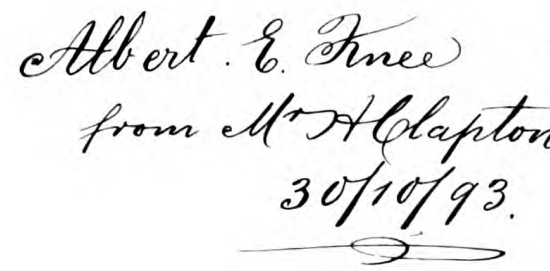 Albert. E. Knee
from Mr H Clapton
30/10/93.